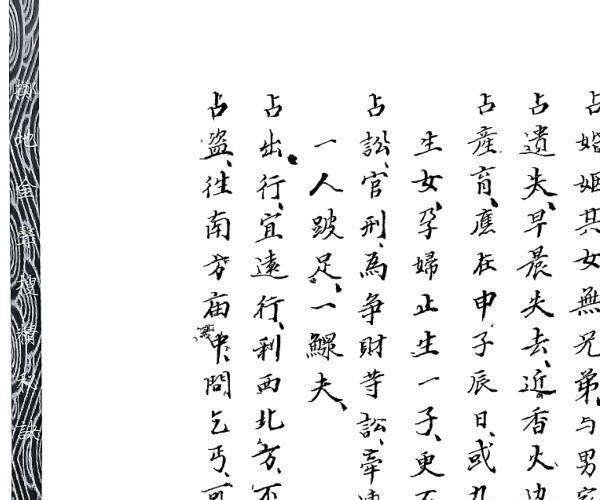 占婚姻其女無兄弟、与男家
占遺失、早晨失去、近香火
占產育、應在申子辰日、或九
生女、孕婦止生一子、更不
占訟、官刑、為争財等訟、牽
一人跛足、一鰥夫、
占出行、宜遠行、利西北方、不
占盜、徃南方庙中、問乞丐、可
擲地金聲搜精秘訣